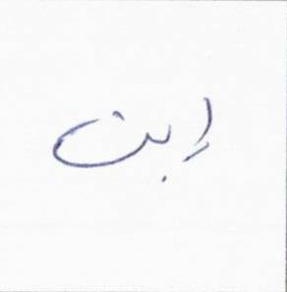 إبن